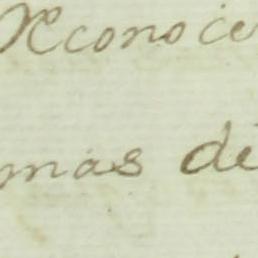 Reconoce
mas de